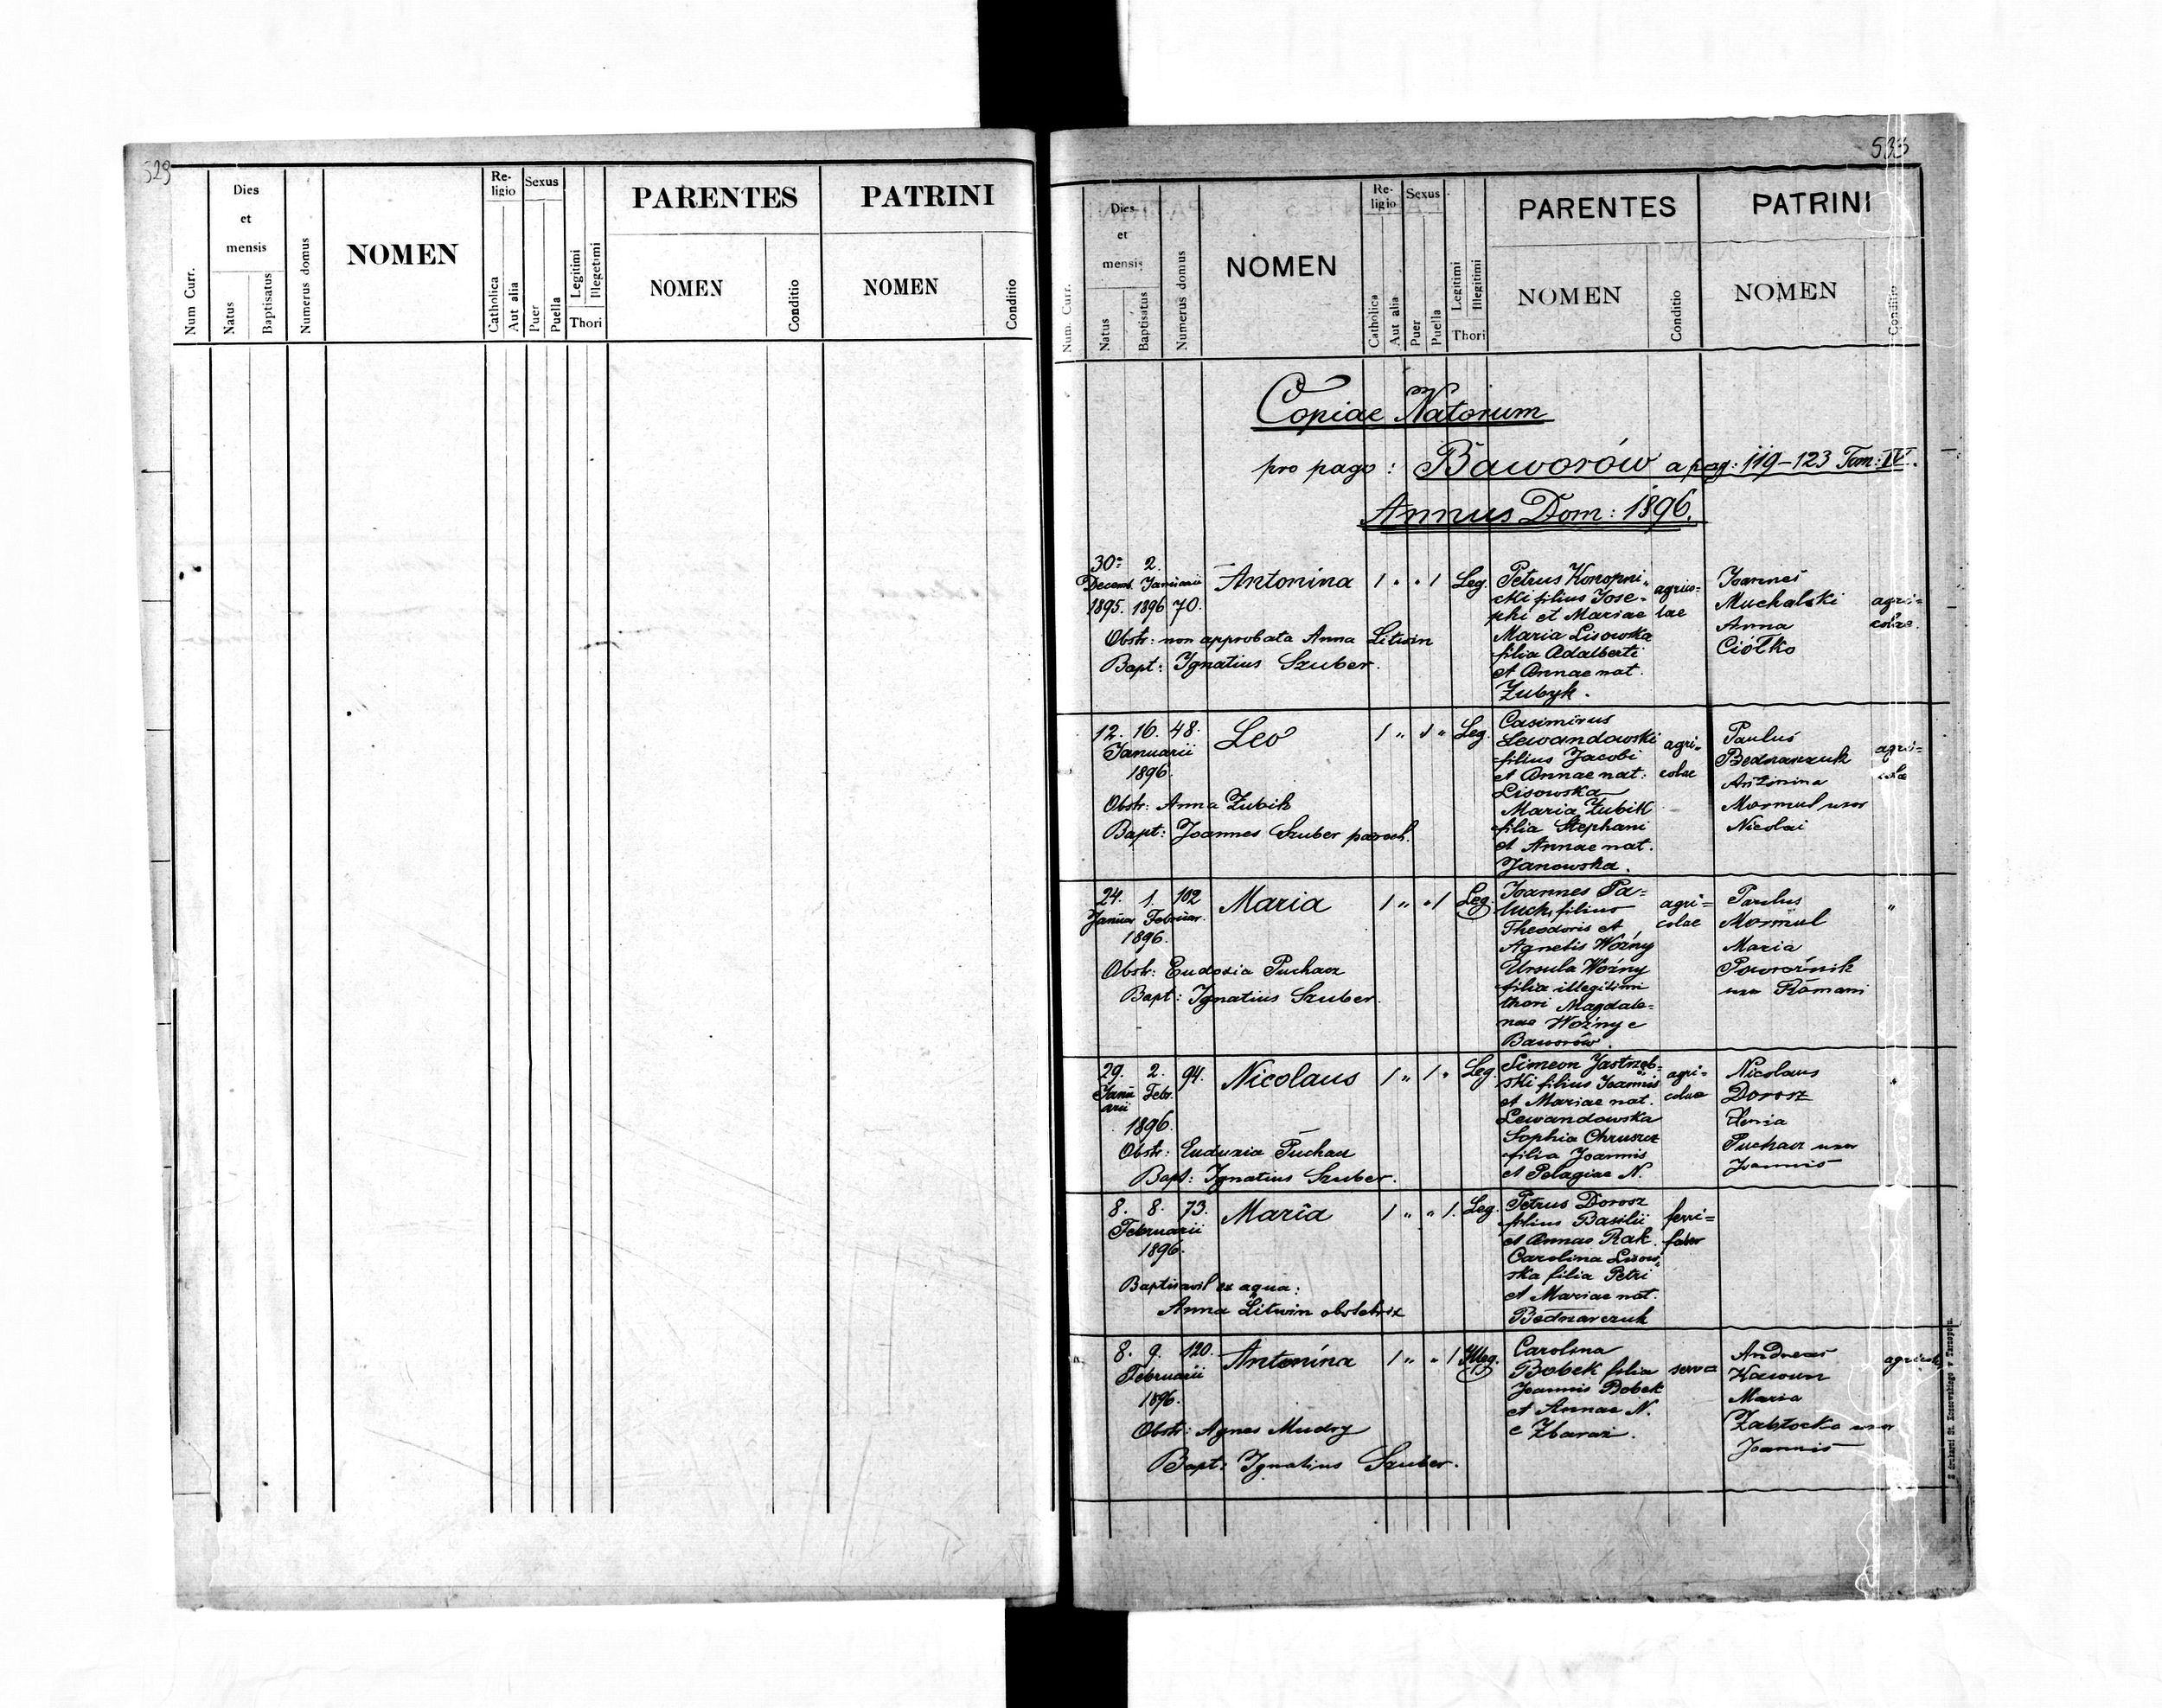 529
Num Curr.
Dies
et
mensis
Natus
Baptisatus
Numerus domus
NOMEN
Re-
ligio
Catholica
Aut alia
Sexus
Puer
Puella
Legitimi
Illegetimi
Thori
PARENTES
NOMEN
Conditio
PATRINI
NOMEN
Conditio
533
Num. Curr.
Dies
et
mensis
Natus
Baptisatus
Numerus domus
NOMEN
Re-
ligio
Catholica
Aut alia
Sexus
Puer
Puella
Legitimi
Illegitimi
Thori
PARENTES
NOMEN
Conditio
PATRINI
NOMEN
Conditio
Copiae Natorum
pro pago: Baworów a pag: 119-123 Tom: IV.
Annus Dom: 1896.
30. 2.
Decemb. Januarii
1895. 1896 70.
Antonina 1 " " 1 Leg.
Obstr: non approbata Anna Litwin
Bapt: Ignatius Szuber.
Petrus Konopni-
cki filius Jose-
phi et Mariae
Maria Lisowska
filia Adalberti
et Annae nat.
Zubyk.
agrico=
lae
Joannes
Muchalski
Anna
Ciółko
agri=
colae.
12. 16. 48.
Januarii
1896.
Leo 1 " 1 " Leg.
Obstr: Anna Zubik
Bapt: Joannes Szuber paroch.
Casimirus
Lewandowski
filius Jacobi
et Annae nat:
Lisowska
Maria Zubik
filia Stephani
et Annae nat.
Janowska.
agri-
colae
Paulus
Bednarczuk
Antonina
Mormul uxor
Nicolai
agri=
colae
24. 1. 102
Januar Februar.
1896.
Maria 1 " " 1 Leg.
Obstr: Eudoxia Puchacz
Bapt: Ignatius Szuber.
Joannes Pa=
luch, filius
Theodoris et
Agnetis Woźny
Ursula Woźny
filia illegitimi
thori Magdale=
nae Woźny e
Baworów.
agri=
colae
Paulus
Mormul
Maria
Powroźnik
uxor Romani
"
29. 2. 94.
Janu Febr.
arii
1896.
Nicolaus 1 " 1 " Leg.
Obstr: Euduxia Puchacz
Bapt: Ignatius Szuber.
Simeon Jastrzęb-
ski filius Joannis
et Mariae nat.
Lewandowska
Sophia Chruszcz
filia Joannis
et Pelagiae N.
agri=
colae
Nicolaus
Dorosz
Xenia
Puchacz uxor
Joannis
"
8. 8. 73.
Februarii
1896.
Maria 1 " " 1. Leg.
Baptisavit ex aqua:
Anna Litwin obstetrix
Petrus Dorosz
filius Basilii
et Annae Rak.
Carolina Lisow-
ska filia Petri
et Mariae nat.
Bednarczuk
ferri=
faber
8. 9. 120.
Februarii
1896.
Antonina 1 " " 1 Illeg.
Obstr: Agnes Mudry
Bapt: Ignatius Szuber.
Carolina
Bobek filia
Joannis Bobek
et Annae N.
e Zbaraż.
serva
Andreas
Kawun
Maria
Zabłocka uxor
Joannis
Z drukarni St. Kossowskiego w Tarnopolu.